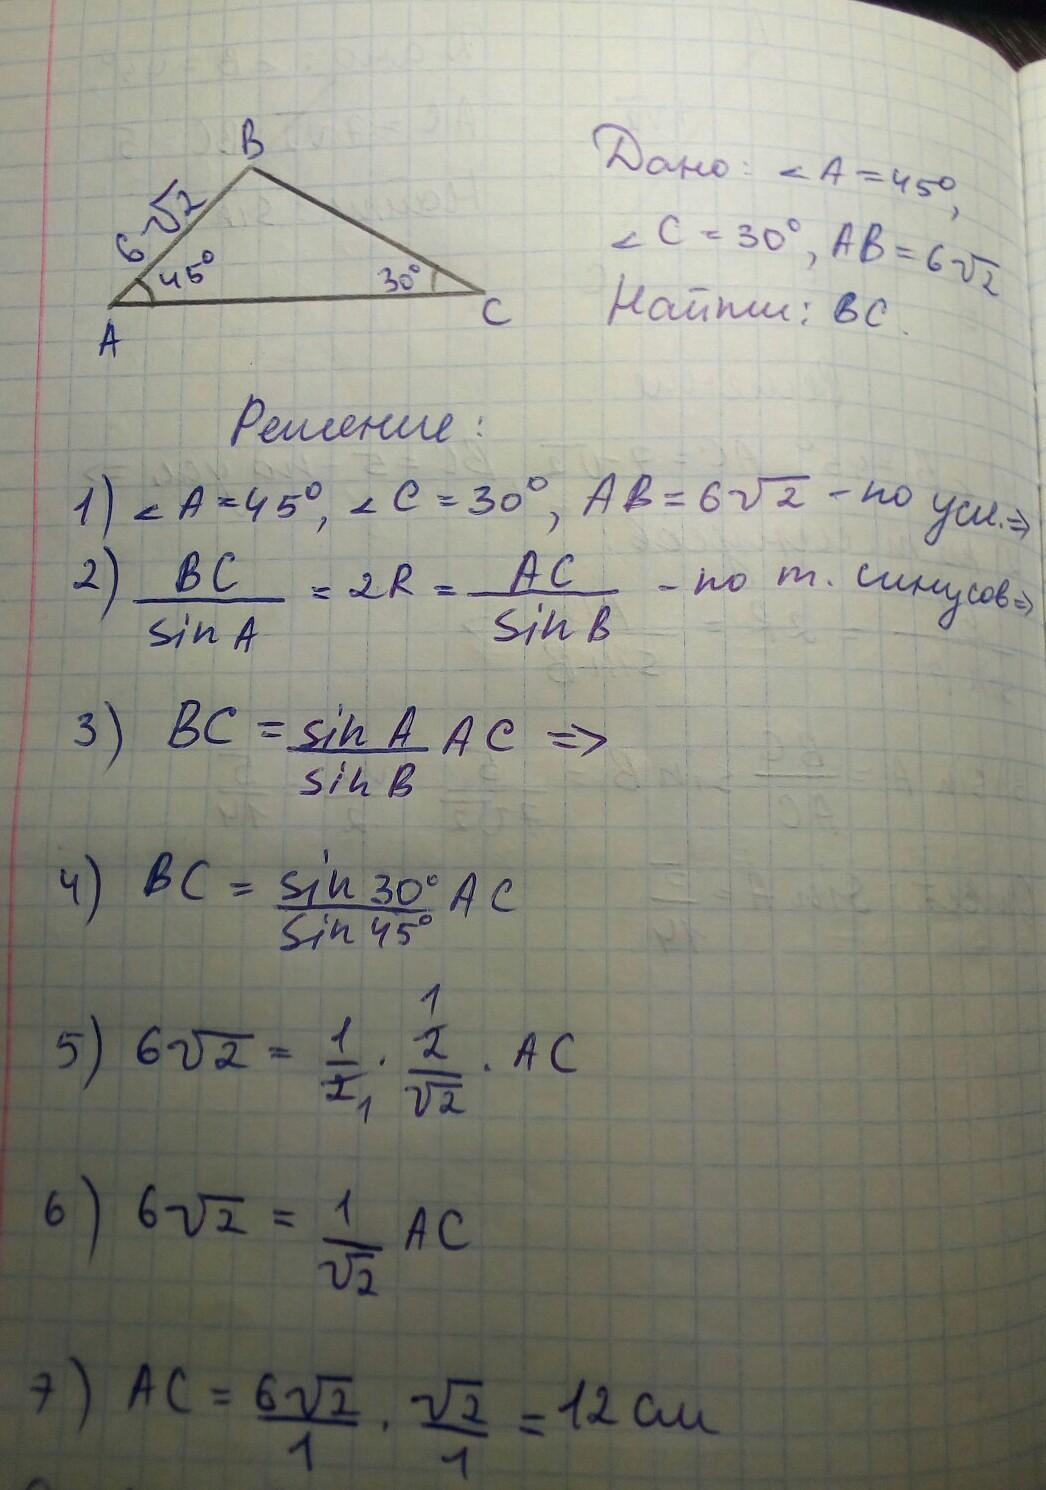 B
6√2
45°
30°
A
C
Дано: ∠A = 45°,
∠C = 30°, AB = 6√2
Найти: BC.
Решение:
1) ∠A = 45°, ∠C = 30°, AB = 6√2 - по усл. ⇒
2) BC/sin A = 2R = AC/sin B - по т. синусов ⇒
3) BC = sin A/sin B AC ⇒
4) BC = sin 30°/sin 45° AC
5) 6√2 = 1/2 1 · 1 2/√2 · AC
6) 6√2 = 1/√2 AC
7) AC = 6√2/1 · √2/1 = 12 см